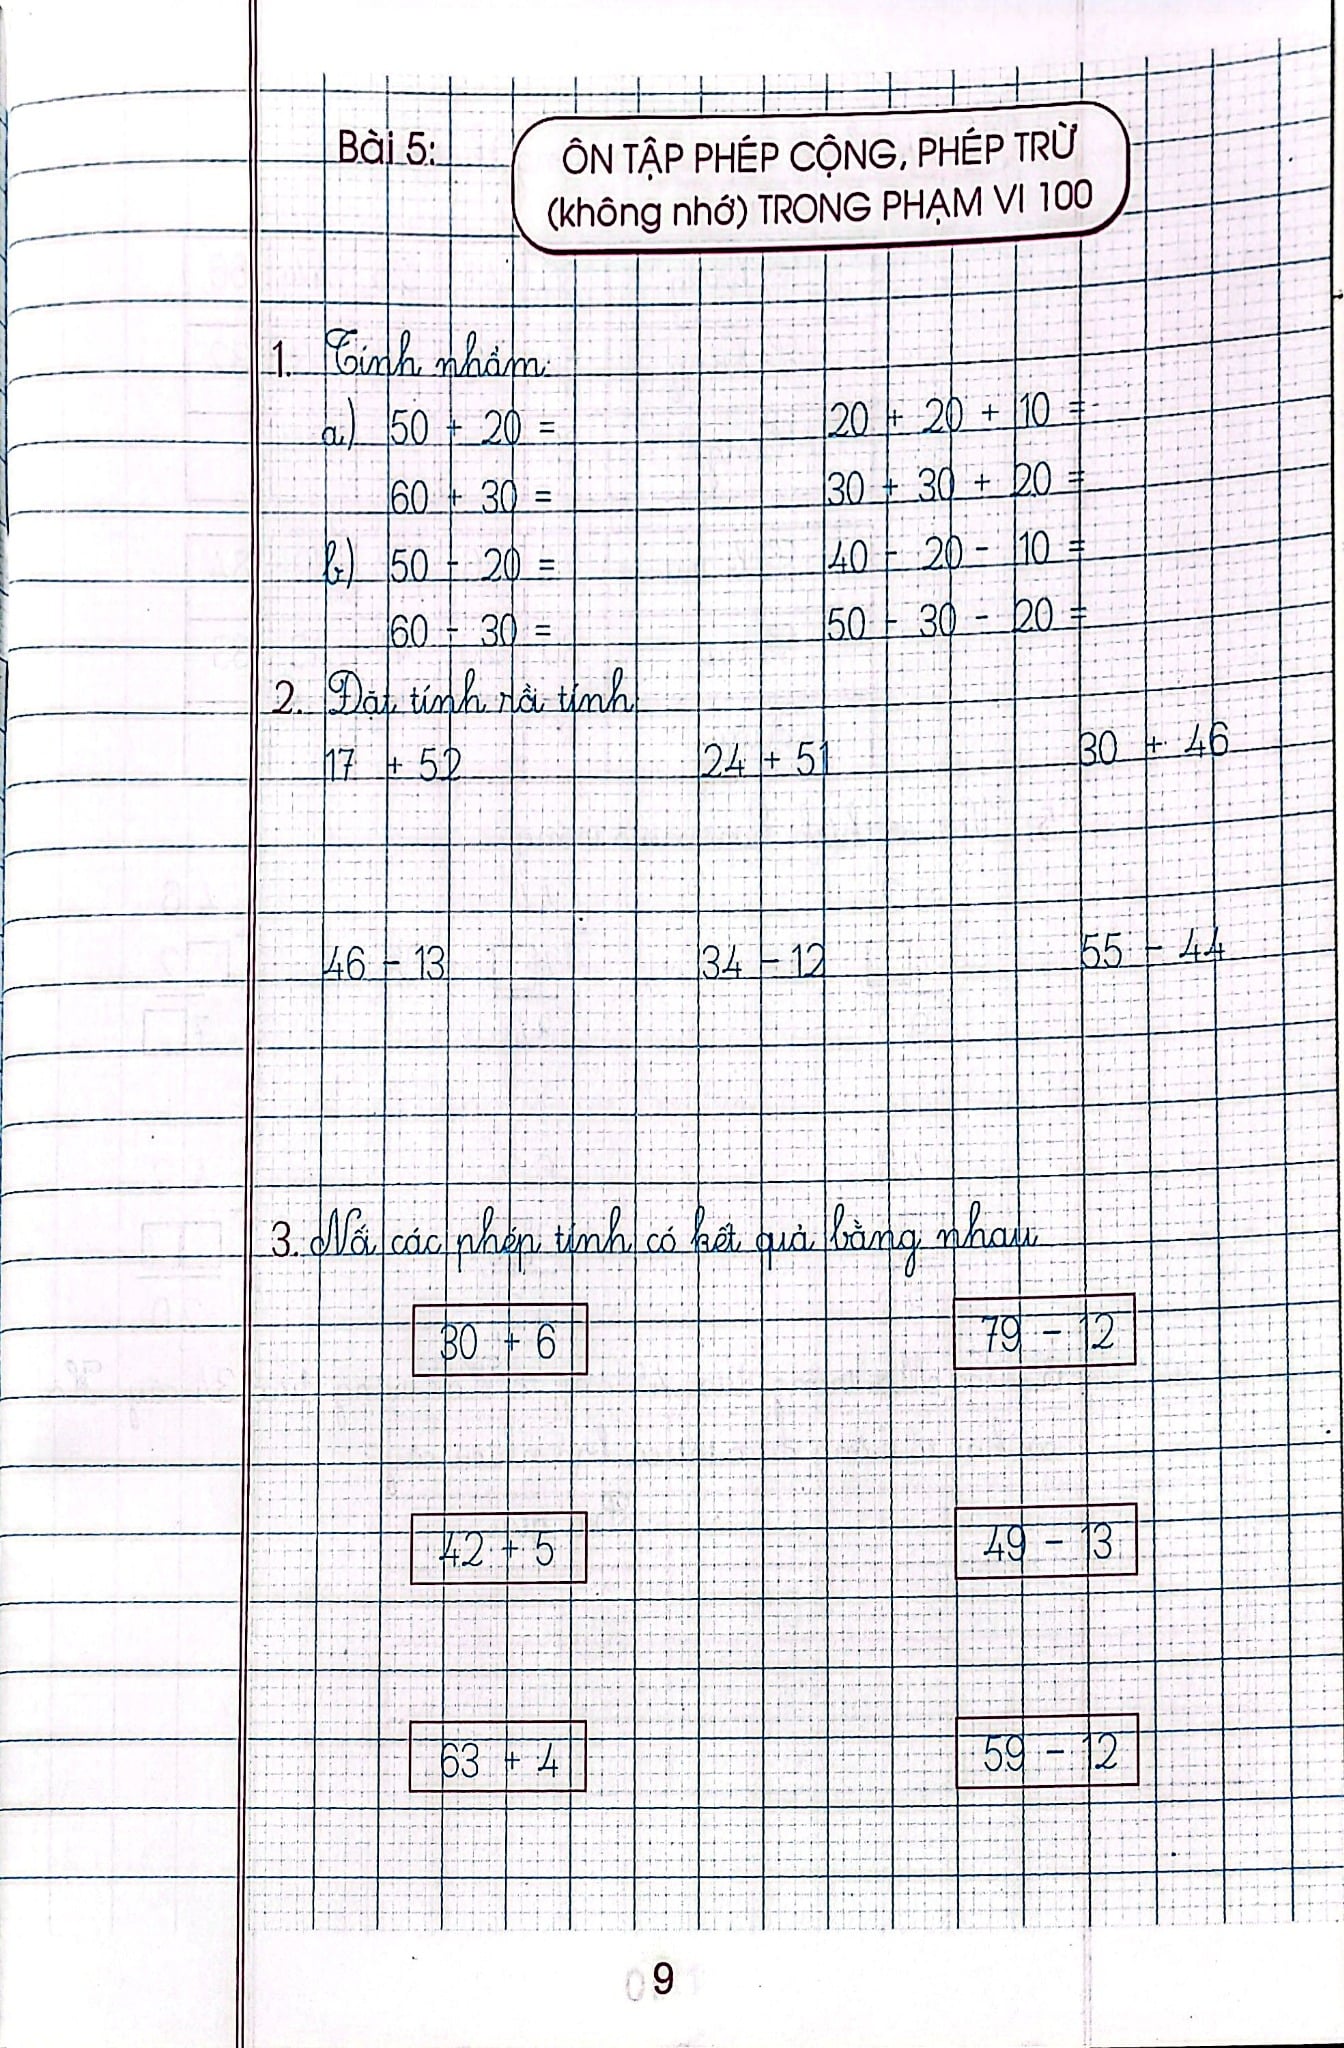 Bài 5:
ÔN TẬP PHÉP CỘNG, PHÉP TRỪ
(không nhớ) TRONG PHẠM VI 100
1. Tính nhẩm:
a) 50 + 20 = 20 + 20 + 10 =
60 + 30 = 30 + 30 + 20 =
b) 50 - 20 = 40 - 20 - 10 =
60 - 30 = 50 - 30 - 20 =
2. Đặt tính rồi tính
17 + 52 24 + 51 30 + 46
46 - 13 34 - 12 55 - 44
3. Nối các phép tính có kết quả bằng nhau
30 + 6 79 - 12
42 + 5 49 - 13
63 + 4 59 - 12
9